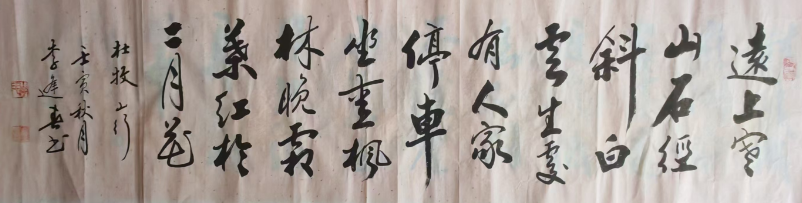 遠上寒
山石徑
斜白
雲生處
有人家
停車
坐愛楓
林晚霜
葉紅於
二月花
杜牧山行
壬寅秋月
李進春书